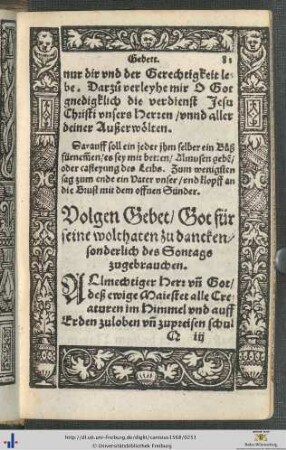 Gebett. 81
nur dir vnd der Gerechtigkeit le-
be. Darzů verleyhe mir O Got
gnedigklich die verdienst Jesu
Christi vnsers Herren / vnnd aller
deiner Außerwölten.
Darauff soll ein jeder jhm selber ein Bůß
fürnemen / es sey mit betten / Almusen gebē /
oder casteyung des Leibs. Zum wenigsten
sag zum ende ein Vater vnser / vnd klopff an
die Brust mit dem offnen Sünder.
Volgen Gebet / Got für
seine wolthaten zu dancken /
sonderlich des Sontags
zugebrauchen.
ALlmechtiger Herr vñ Got /
deß ewige Maiestet alle Cre-
aturen im Himmel vnd auff
Erden zuloben vñ zupreisen schul
iij
http://dl.ub.uni-freiburg.de/diglit/canisius1569/0251
© Universitätsbibliothek Freiburg